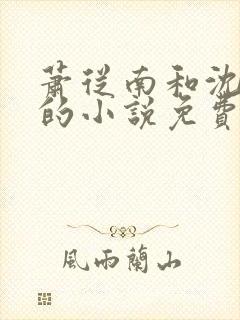 蕭從南和沈
的小說免費
風雨蘭山